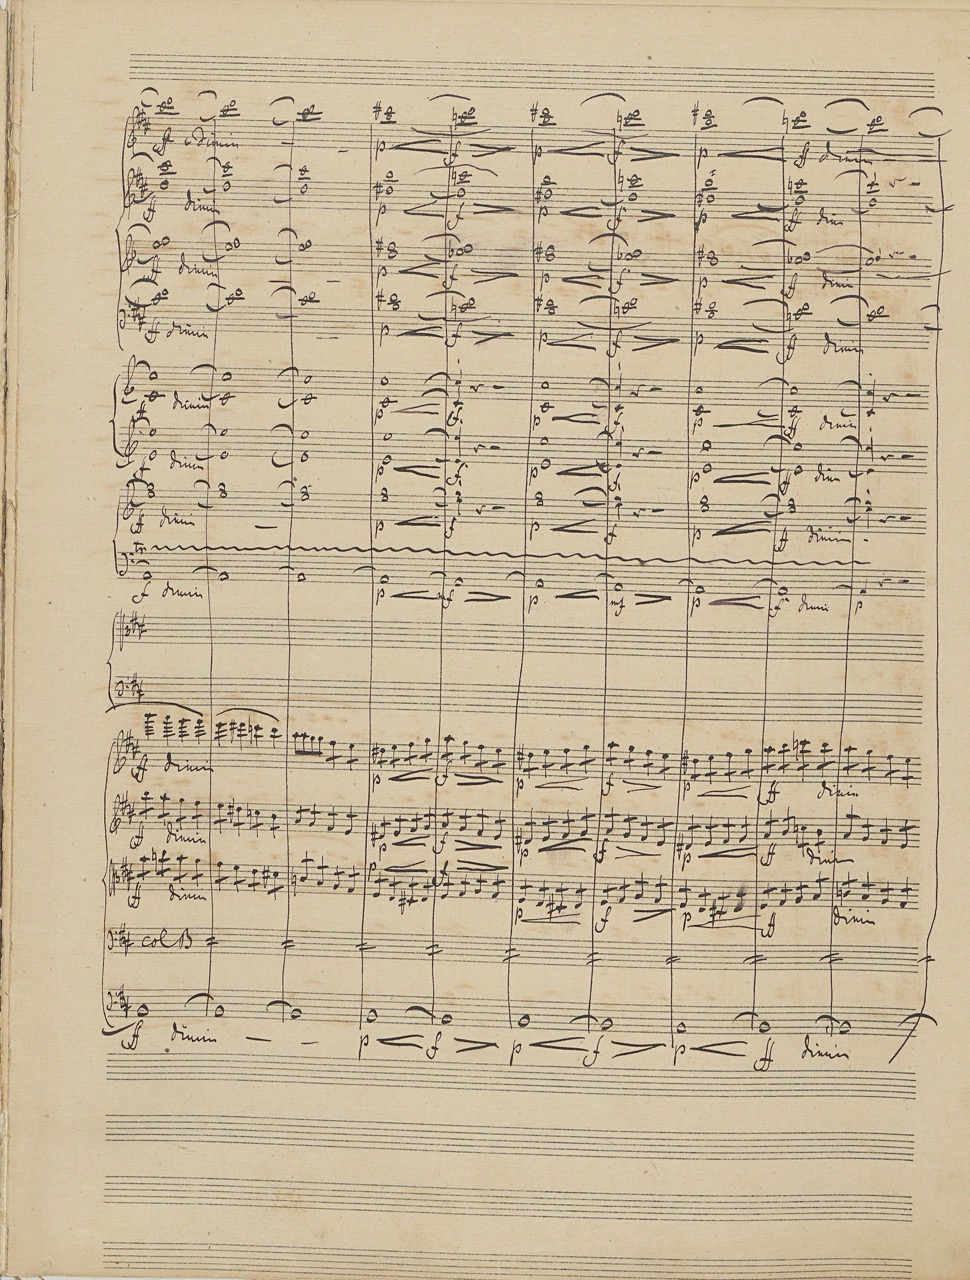 ff dimin
p f p f p ff dimin
ff dimin
p f p f p ff dim
ff dimin
p f p f p ff dimin
ff dimin
p f p f p ff dimin
ff dimin
p f p f p ff dimin
f dimin
p f p f p ff dim
ff dimin
p f p f p ff dimin
tr
f dimin
p f p mf p f dimin p
ff dimin
p f p f p ff dimin
ff dimin
p f p f p ff dimin
ff dimin
p f p f p ff dimin
col B
ff dimin
p f p f p ff dimin